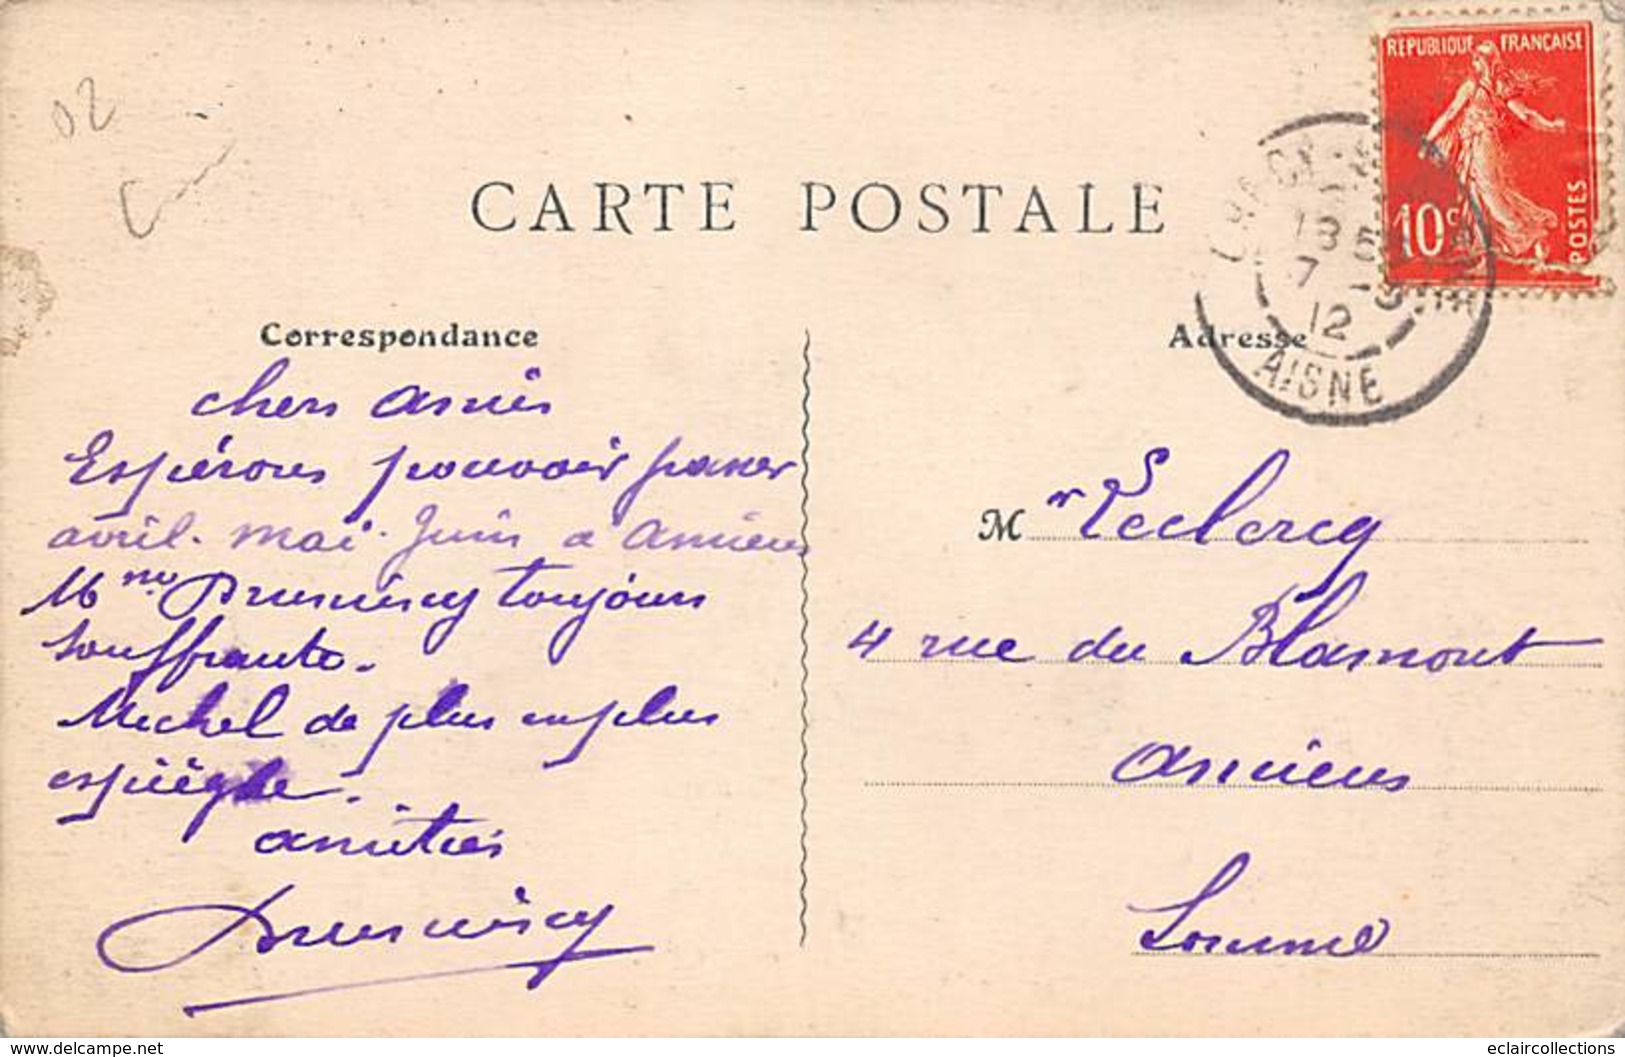 02
RÉPUBLIQUE FRANÇAISE
10c
POSTES
CARTE POSTALE
13
7 -3
12
AISNE
Correspondance
Adresse
chers amis
Espérons pouvoir passer
avril. mai. Juin a amiens
Mme toujours
souffrante.
Michel de plus en plus
espiègle.
amitiés
Mr Leclercq
4 rue du Blamont
amiens
Somme
www.delcampe.net
eclaircollections